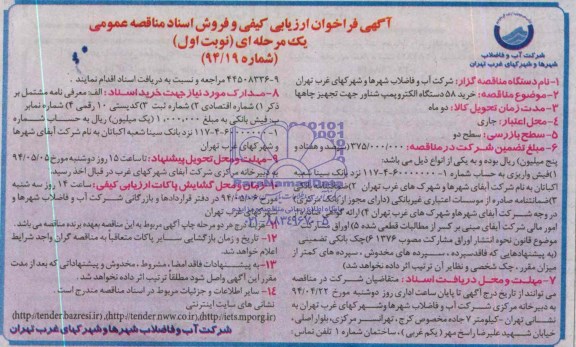 آگهی فراخوان ارزیابی کیفی و فروش اسناد مناقصه عمومی
یک مرحله ای (نوبت اول)
(شماره ۹۴/۱۹)
شرکت آب و فاضلاب
شهرها و شهرکهای غرب تهران
۱-نام دستگاه مناقصه گزار: شرکت آب و فاضلاب شهرها و شهرکهای غرب تهران
۲-موضوع مناقصه: خرید ۵۸ دستگاه الکتروپمپ شناور جهت تجهیز چاهها
۳-مدت زمان تحویل کالا: دو ماه
۴-محل اعتبار: جاری
۵-سطح بازرسی: سطح دو
۶-مبلغ تضمین شرکت در مناقصه:
پنج میلیون) ریال بوده و به یکی از انواع ذیل می باشد:
۱)فیش واریزی به حساب شماره ۱-۶۰۰۰۰۰۰-۴-۱۱۷ نزد بانک سینا شعبه
اکباتان به نام شرکت آبفای شهرها و شهرک های غرب تهران
۳)ضمانتنامه صادره از موسسات اعتباری غیربانکی (دارای مجوز از بانک مرکزی)
در وجه شرکت آبفای شهرها و شهرک های غرب تهران ۴)ارائه گواهی
امور مالی شرکت آبفای مبنی بر کسر از مطالبات قطعی شده ۵)اوراق مشارکت
موضوع قانون نحوه انتشار اوراق مشارکت مصوب ۱۳۷۶ ۶)چک بانکی تضمینی
(به پیشنهادهایی که فاقد سپرده، سپرده های مخدوش، سپرده های کمتر از
میزان مقرر، چک شخصی و نظایر آن ترتیب اثر داده نخواهد شد)
۷-مهلت و محل دریافت اسناد: متقاضیان شرکت در مناقصه
می توانند از تاریخ درج آگهی تا پایان ساعت اداری روز دوشنبه مورخ ۹۴/۰۴/۲۲
به دبیرخانه مرکزی شرکت آب و فاضلاب شهرها و شهرکهای غرب تهران به
نشانی تهران-کیلومتر ۷ جاده مخصوص کرج، تهرانسر مرکزی، بلوار اصلی،
خیابان شهید علیرضا راسخ مهر (یکم غربی)، ساختمان شماره ۱ تلفن تماس:
۹-۴۴۵۰۸۳۳۶ مراجعه و نسبت به دریافت اسناد اقدام نمایند.
۸-مدارک مورد نیاز جهت خرید اسناد: الف: معرفی نامه مشتمل بر
ذکر ۱) شماره اقتصادی ۲) شماره ثبت ۳)کدپستی ۱۰ رقمی ۴) شماره نمابر
ب:فیش بانکی به مبلغ ۱,۰۰۰,۰۰۰ (یک میلیون) ریال به حساب شماره
نزد بانک سینا شعبه اکباتان به نام شرکت آبفای شهرها
و شهرکهای غرب تهران
۹-مهلت و محل تحویل پیشنهاد: تا ساعت ۱۵ روز دوشنبه مورخ ۹۴/۰۵/۰۵
به دبیرخانه مرکزی شرکت آبفای شهرهای غرب در قبال اخذ رسید.
۱۰-زمان و محل گشایش پاکات ارزیابی کیفی: ساعت ۱۴ روز سه شنبه
مورخ ۹۴/۰۵/۰۶ در دفتر قراردادها و بازرگانی شرکت آب و فاضلاب شهرها و
شهرکهای غرب تهران
۱۱-هزینه درج هر دو مرحله چاپ آگهی مربوط به این مناقصه بعهده برنده مناقصه می باشد.
۱۲- تاریخ و زمان بازگشایی سایر پاکات متعاقباً به مناقصه گران واجد شرایط
اعلام خواهد شد.
۱۳-به پیشنهادات فاقد امضا، مشروط، مخدوش و پیشنهاداتی که بعد از مدت
مقرر این آگهی واصل شود مطلقاً ترتیب اثر داده نخواهد شد.
۱۴- سایر اطلاعات و جزئیات مربوط در اسناد مناقصه مندرج است.
نشانی های سایت اینترنتی
(http://tender.bazresi.ir), (http://tender.nww.co.ir), (http://iets.mporg.ir)
شرکت آب و فاضلاب شهرها و شهرکهای غرب تهران